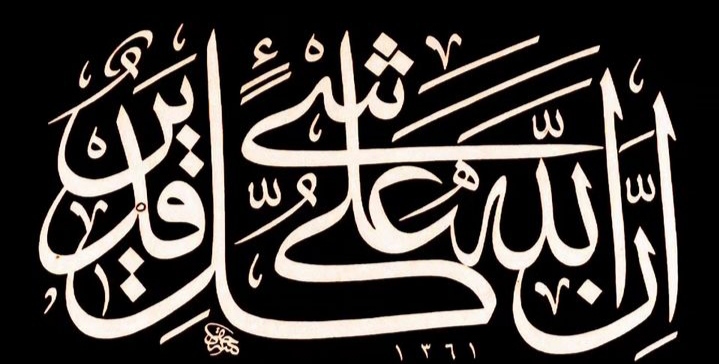 إِنَّ اللّٰهَ عَلَىٰ كُلِّ شَيْءٍ قَدِيرٌ
١٣٦١